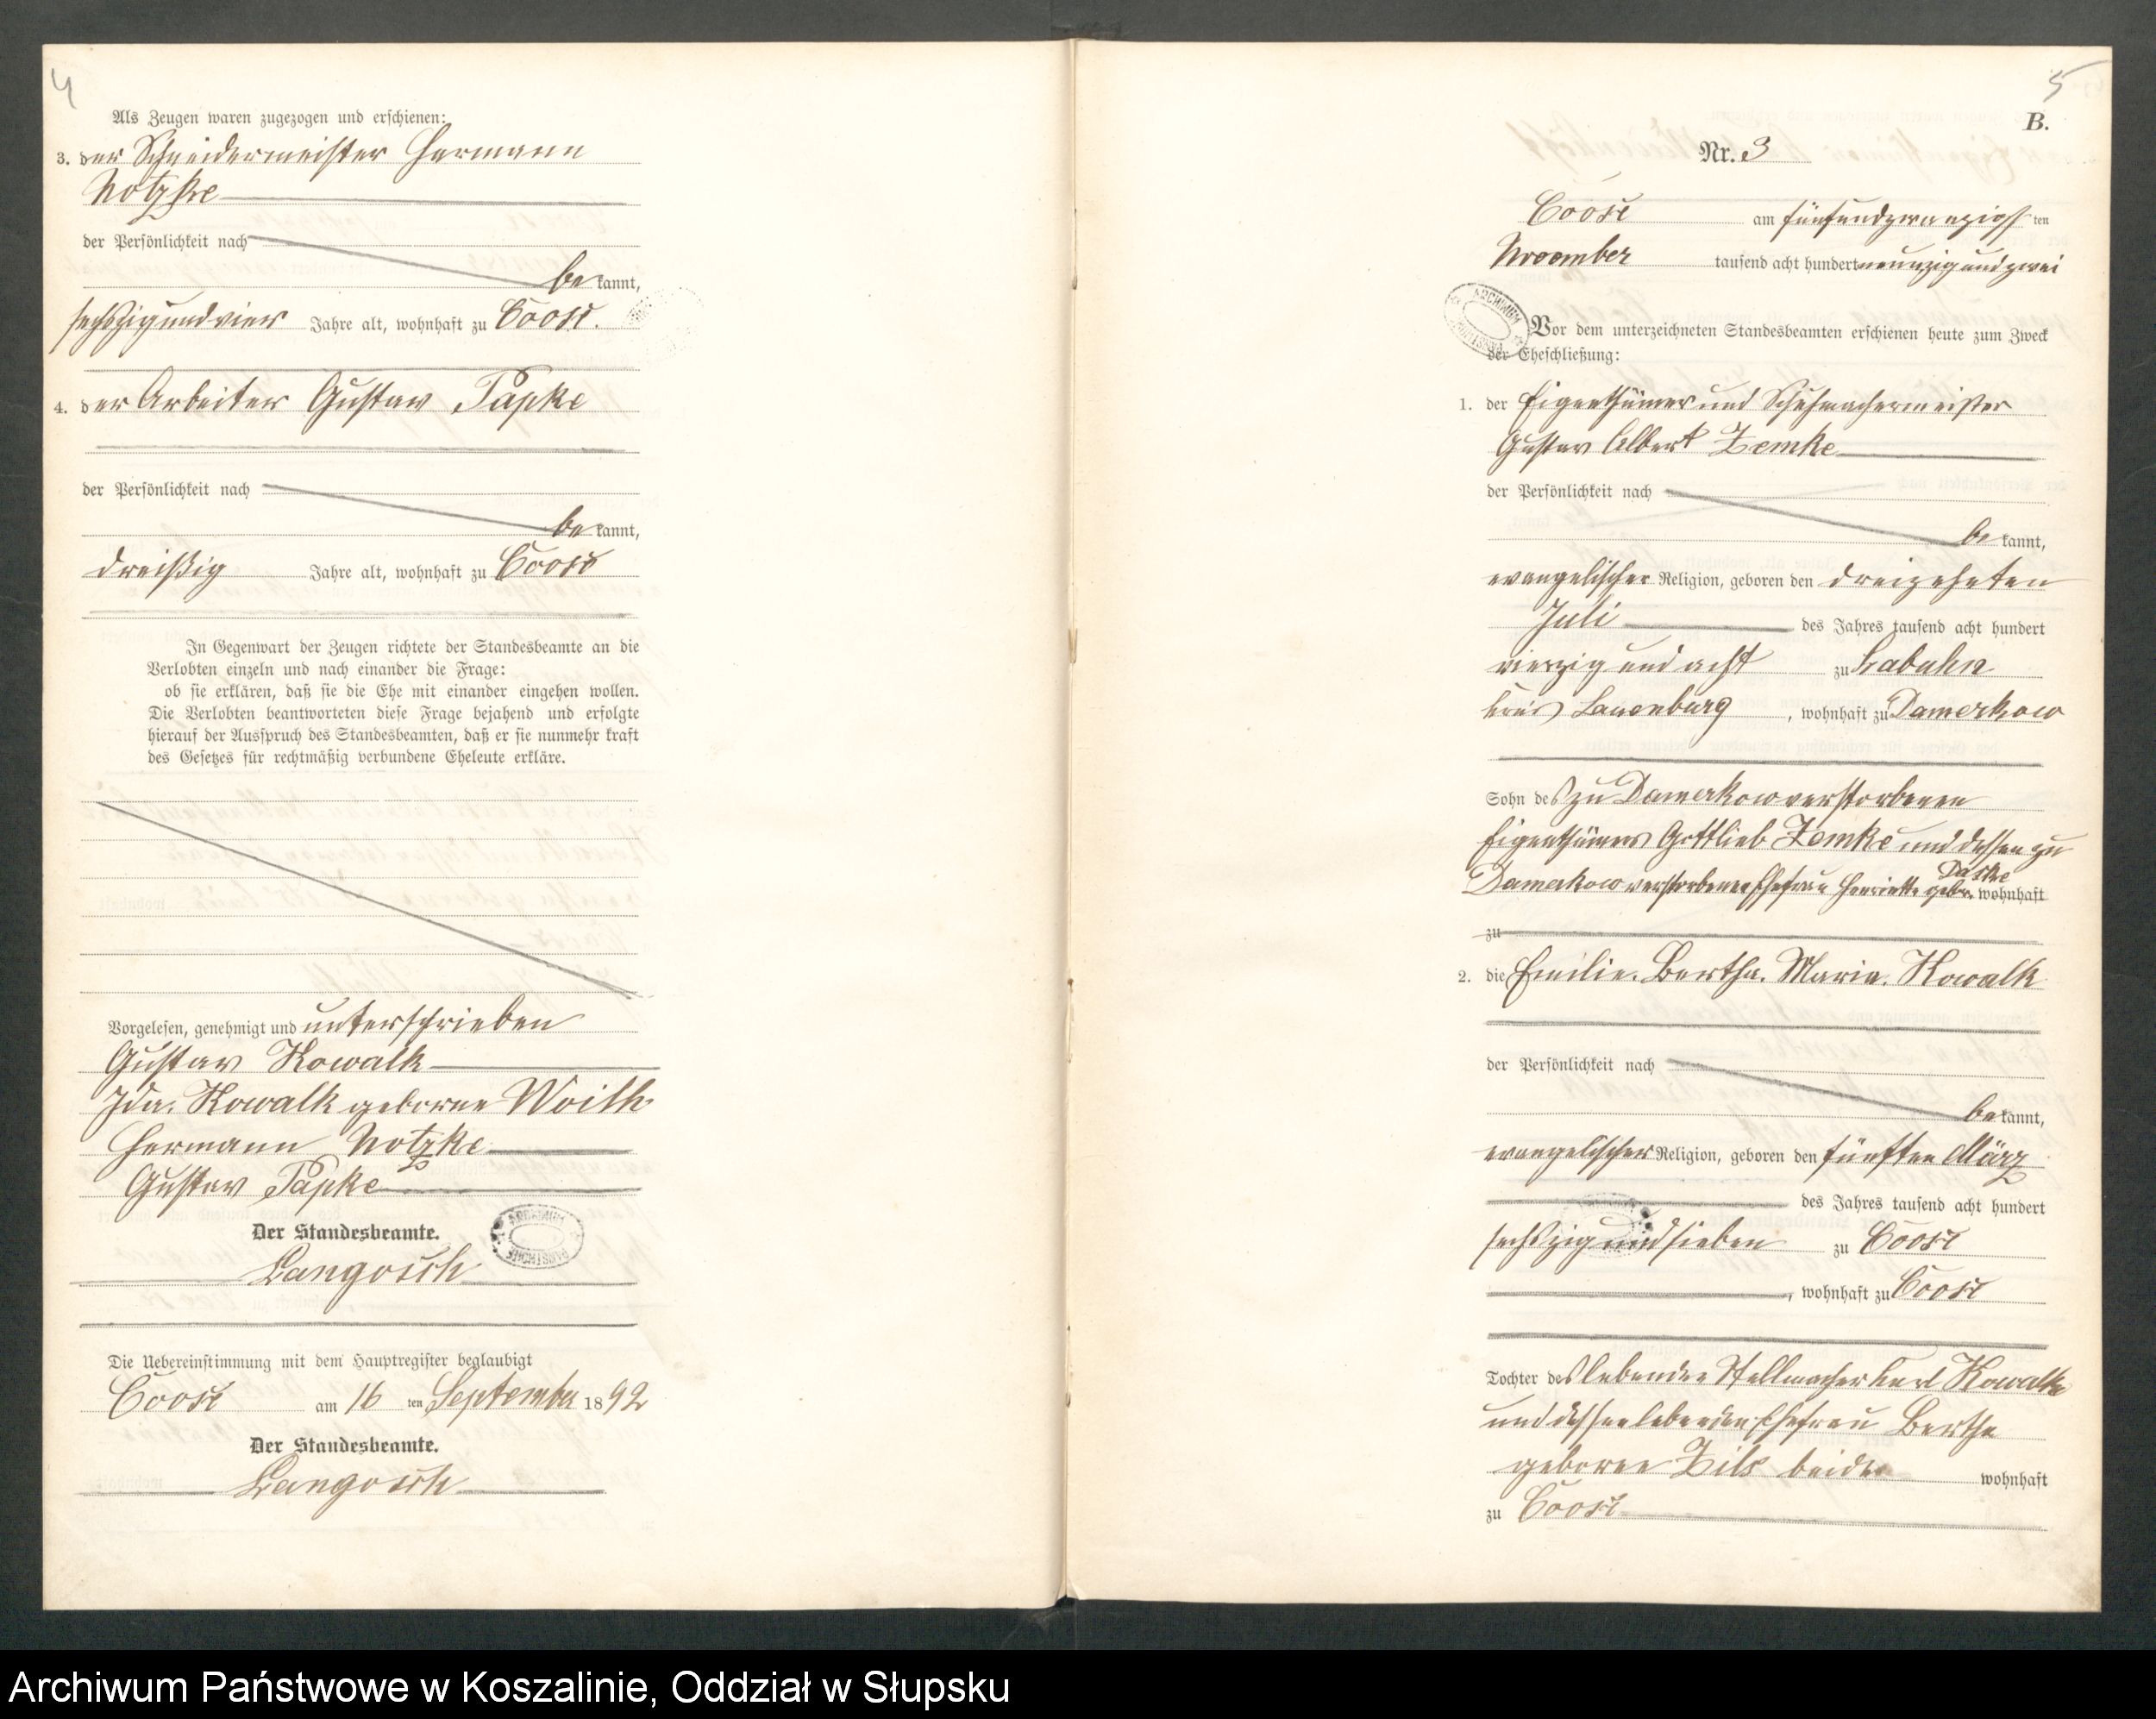 4
Als Zeugen waren zugezogen und erschienen:
3. der Schneidermeister Hermann
Notzke
der Persönlichkeit nach
be kannt,
sechszigundvier Jahre alt, wohnhaft zu Coose.
4. der Arbeiter Gustav Papke
der Persönlichkeit nach
be kannt,
dreißig Jahre alt, wohnhaft zu Coose
In Gegenwart der Zeugen richtete der Standesbeamte an die
Verlobten einzeln und nach einander die Frage:
ob sie erklären, daß sie die Ehe mit einander eingehen wollen.
Die Verlobten beantworteten diese Frage bejahend und erfolgte
hierauf der Ausspruch des Standesbeamten, daß er sie nunmehr kraft
des Gesetzes für rechtmäßig verbundene Eheleute erkläre.
Vorgelesen, genehmigt und unterschrieben
Gustav Kowalk
Ida. Kowalk geborne Woith
Hermann Notzke
Gustav Papke
Der Standesbeamte.
Langosch
Die Uebereinstimmung mit dem Hauptregister beglaubigt
Coose am 16 ten September 1892
Der Standesbeamte.
Langosch
5
B.
Nr. 3
Coose am fünfundzwanzigsten
November tausend acht hundert neunzig und zwei
ARCHIWUM PAŃSTWOWE
Vor dem unterzeichneten Standesbeamten erschienen heute zum Zweck
der Eheschließung:
1. der Eigenthümer und Schuhmachermeister
Gustav Albert Zemke
der Persönlichkeit nach
be kannt,
evangelischer Religion, geboren den dreizehnten
Juli des Jahres tausend acht hundert
vierzig und acht zu Labuhn
Kreis Lauenburg, wohnhaft zu Damerkow
Sohn des zu Damerkow verstorbenen
Eigenthümers Gottlieb Zemke und dessen zu
Damerkow verstorbenen Ehefrau Henriette gebr. Daske wohnhaft
zu
2. die Emilie. Bertha. Maria. Kowalk
der Persönlichkeit nach
be kannt,
evangelischer Religion, geboren den fünften März
des Jahres tausend acht hundert
sechszig und sieben zu Coose
, wohnhaft zu Coose
Tochter des lebenden Stellmacher Karl Kowalk
und dessen lebenden Ehefrau Bertha
geborne Zils beide wohnhaft
zu Coose
Archiwum Państwowe w Koszalinie, Oddział w Słupsku